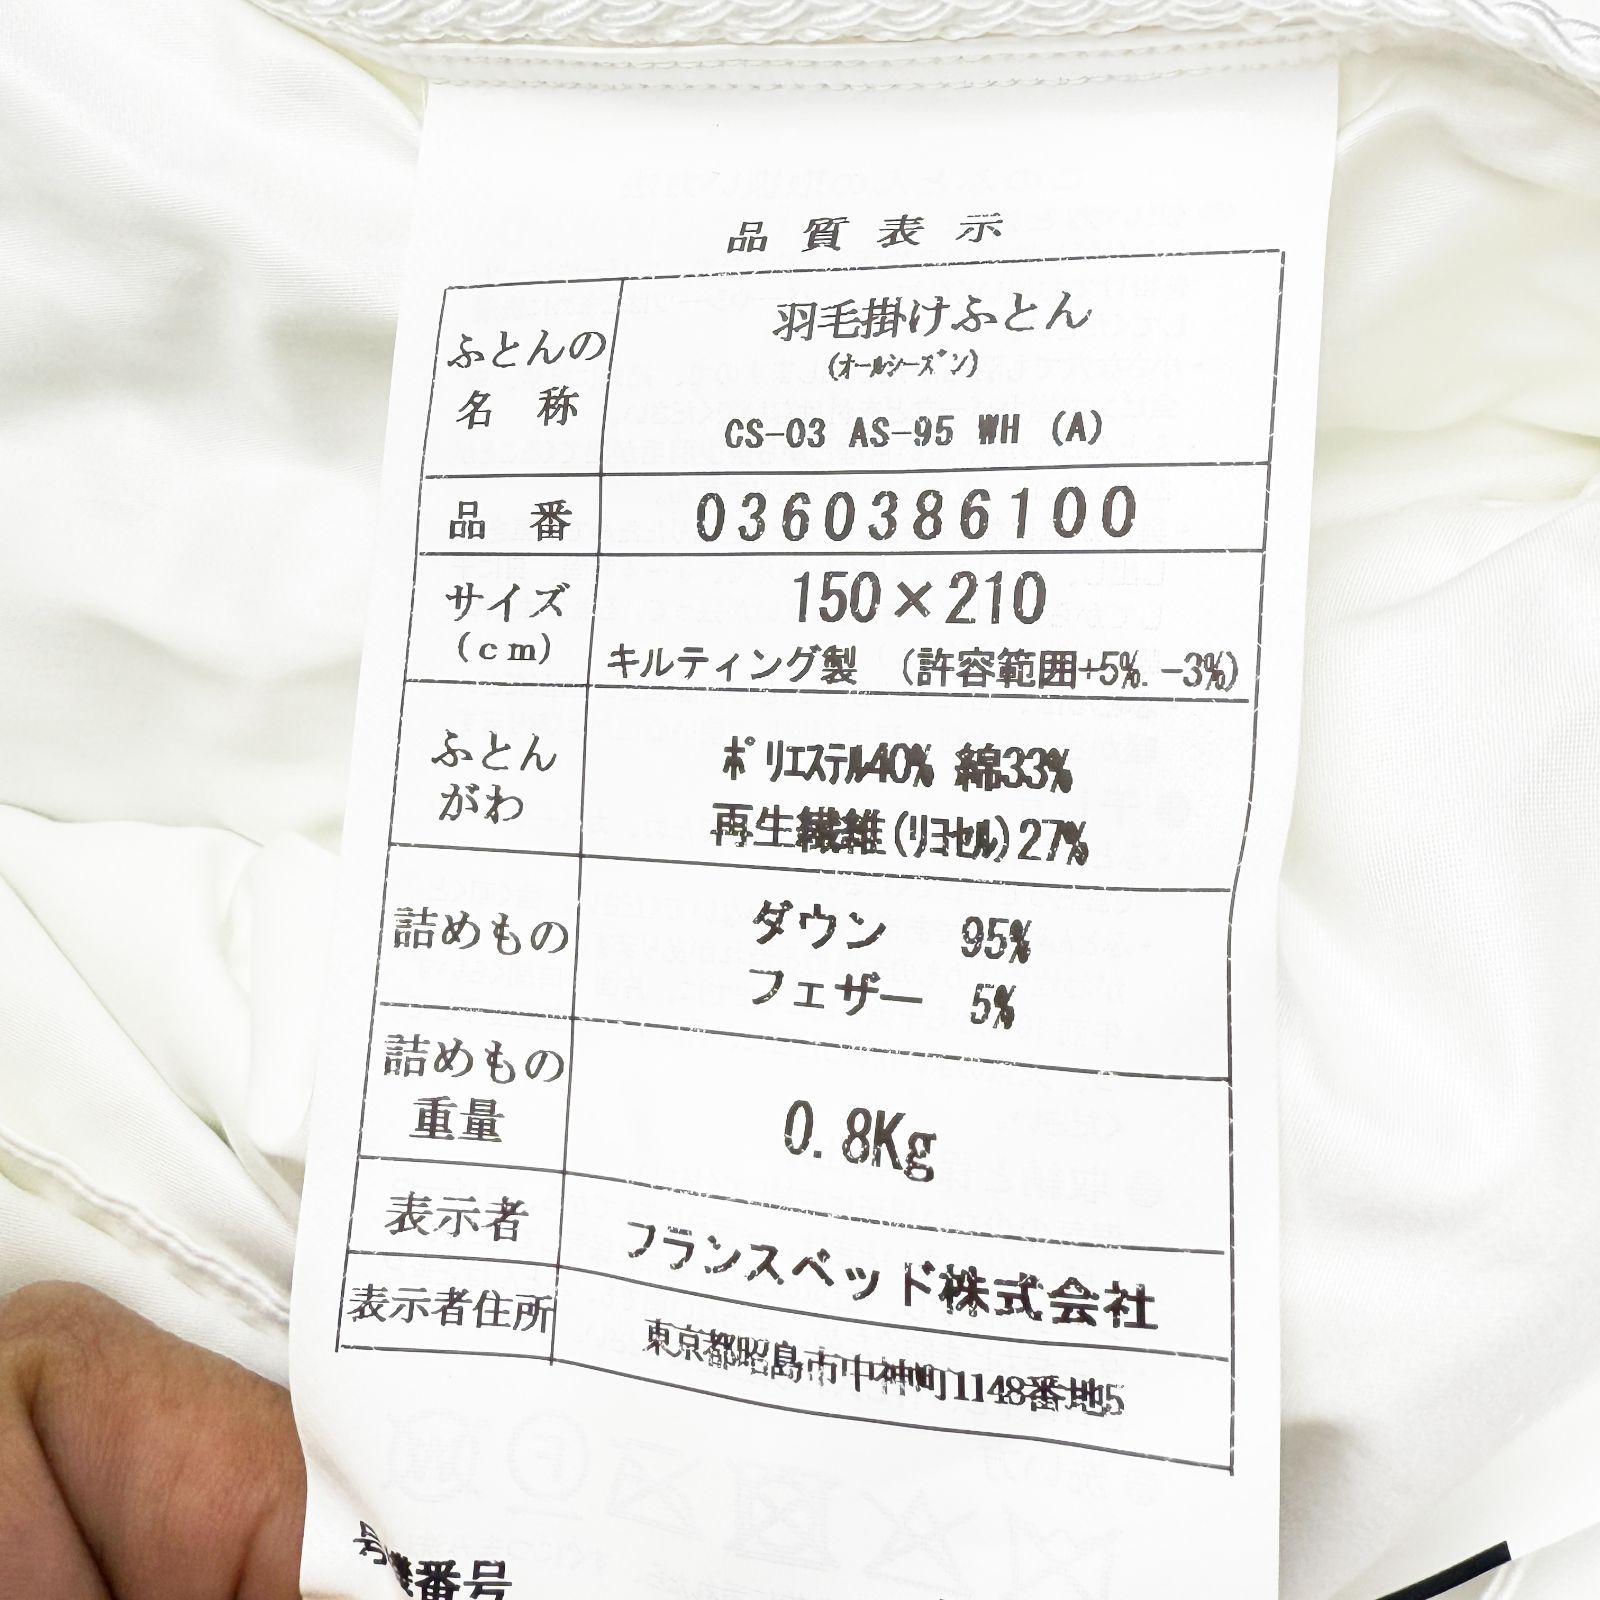 品質表示
ふとんの名称
羽毛掛けふとん
(オールシーズン)
CS-03 AS-95 WH (A)
品番
0360386100
サイズ
(cm)
150×210
キルティング製 (許容範囲+5%.-3%)
ふとん
がわ
ポリエステル40% 綿33%
再生繊維(リヨセル)27%
詰めもの
ダウン 95%
フェザー 5%
詰めもの
重量
0.8Kg
表示者
フランスベッド株式会社
表示者住所
東京都昭島市中神町1148番地5
番号